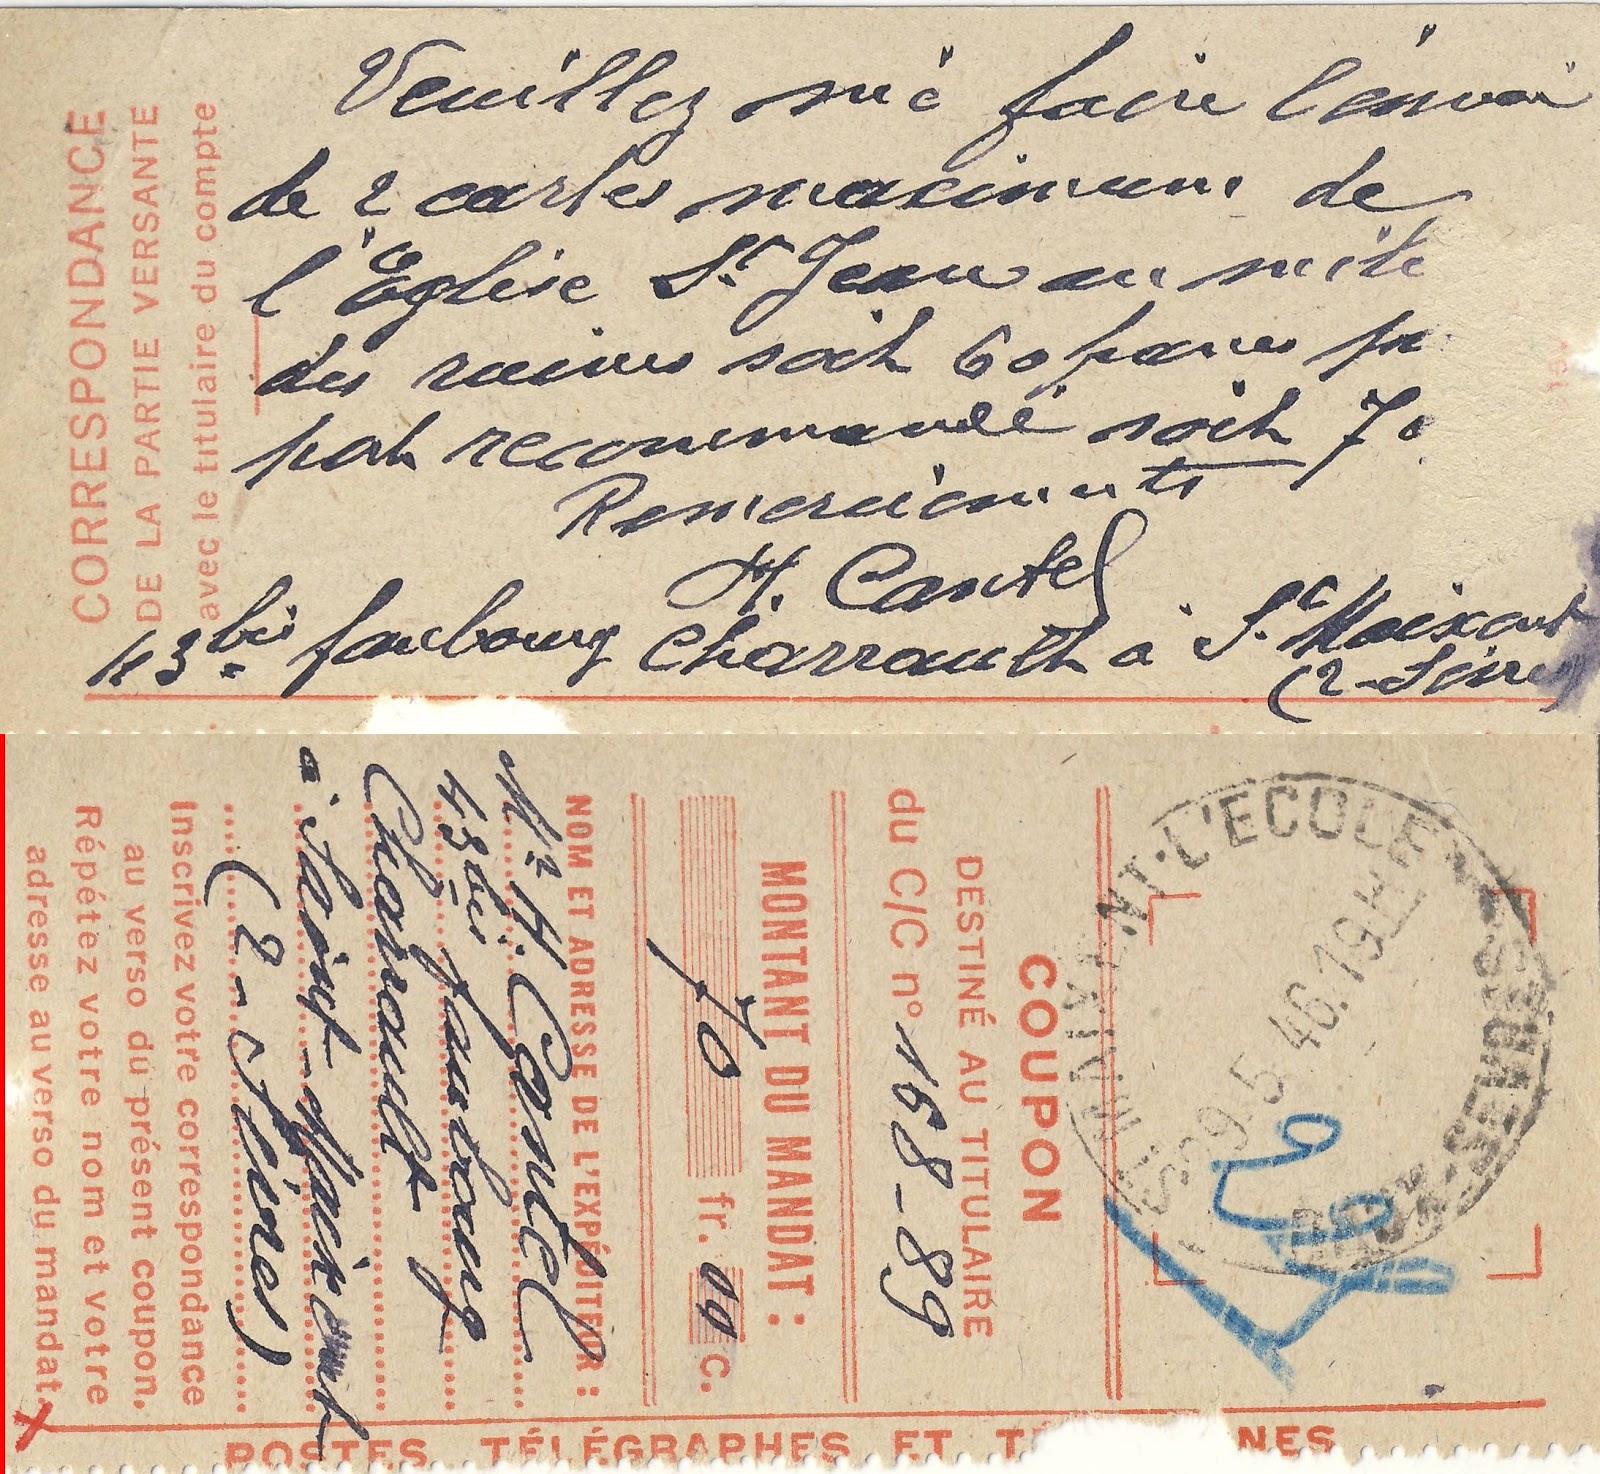 CORRESPONDANCE
DE LA PARTIE VERSANTE
avec le titulaire du compte
Veuillez me faire l'envoi
de 2 cartes maximum de
l'Eglise St Jean au milieu
des ruines soit 60 francs
port recommandé soit 70
Remerciements
H. Cantel
43 bis faubourg Charrault à St Maixent
(2-Sèvres)
COUPON
DESTINÉ AU TITULAIRE
du C/C n° 168-89
MONTANT DU MANDAT :
70 fr. 00 c.
NOM ET ADRESSE DE L'EXPÉDITEUR :
Mr H. Cantel
43 bis faubourg
Charrault
à Saint-Maixent
(2-Sèvres)
Inscrivez votre correspondance
au verso du présent coupon.
Répétez votre nom et votre
adresse au verso du mandat.
POSTES TÉLÉGRAPHES ET
ST MAIXENT-L'ECOLE
29.5 46.19H
DEUX-SEVRES